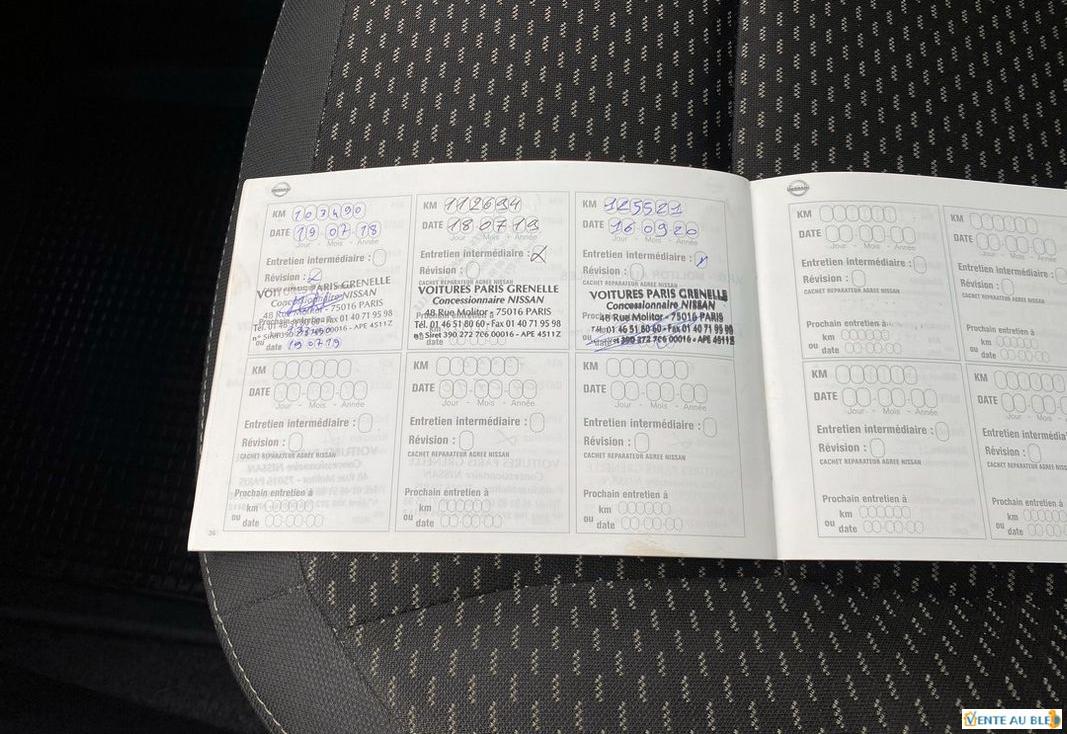 KM 103490
DATE 19 07 18
Jour - Mois - Année
Entretien intermédiaire :
Révision : X
VOITURES PARIS GRENELLE
Concessionnaire NISSAN
48 Rue Molitor - 75016 PARIS
Tél. 01 46 51 80 60 - Fax 01 40 71 95 98
n° Siret 390 272 706 00016 - APE 4511Z
ou date 19 07 19
KM 112694
DATE 18 07 19
Jour - Mois - Année
Entretien intermédiaire : X
Révision :
CACHET REPARATEUR AGREE NISSAN
VOITURES PARIS GRENELLE
Concessionnaire NISSAN
48 Rue Molitor - 75016 PARIS
Tél. 01 46 51 80 60 - Fax 01 40 71 95 98
n° Siret 390 272 706 00016 - APE 4511Z
ou date
KM 125521
DATE 16 09 20
Jour - Mois - Année
Entretien intermédiaire : X
Révision :
CACHET REPARATEUR AGREE NISSAN
VOITURES PARIS GRENELLE
Concessionnaire NISSAN
48 Rue Molitor - 75016 PARIS
Tél. 01 46 51 80 60 - Fax 01 40 71 95 98
n° Siret 390 272 706 00016 - APE 4511Z
ou date
KM
DATE
Jour - Mois - Année
Entretien intermédiaire :
Révision :
CACHET REPARATEUR AGREE NISSAN
Prochain entretien à
km
ou date
KM
DATE
Jour - Mois - Année
Entretien intermédiaire :
Révision :
CACHET REPARATEUR AGREE NISSAN
Prochain entretien à
km
ou date
KM
DATE
Jour - Mois - Année
Entretien intermédiaire :
Révision :
CACHET REPARATEUR AGREE NISSAN
Prochain entretien à
km
ou date
36
KM
DATE
Jour - Mois - Année
Entretien intermédiaire :
Révision :
CACHET REPARATEUR AGREE NISSAN
Prochain entretien à
km
ou date
KM
DATE
Jour - Mois
Entretien intermédiaire
Révision :
CACHET REPARATEUR AGREE NISSAN
Prochain entretien à
km
ou date
KM
DATE
Jour - Mois - Année
Entretien intermédiaire :
Révision :
CACHET REPARATEUR AGREE NISSAN
Prochain entretien à
km
ou date
KM
DATE
Jour - Mois
Entretien intermédia
Révision :
CACHET REPARATEUR AGREE NISSAN
Prochain entretien à
km
ou date
VENTE AU BLE